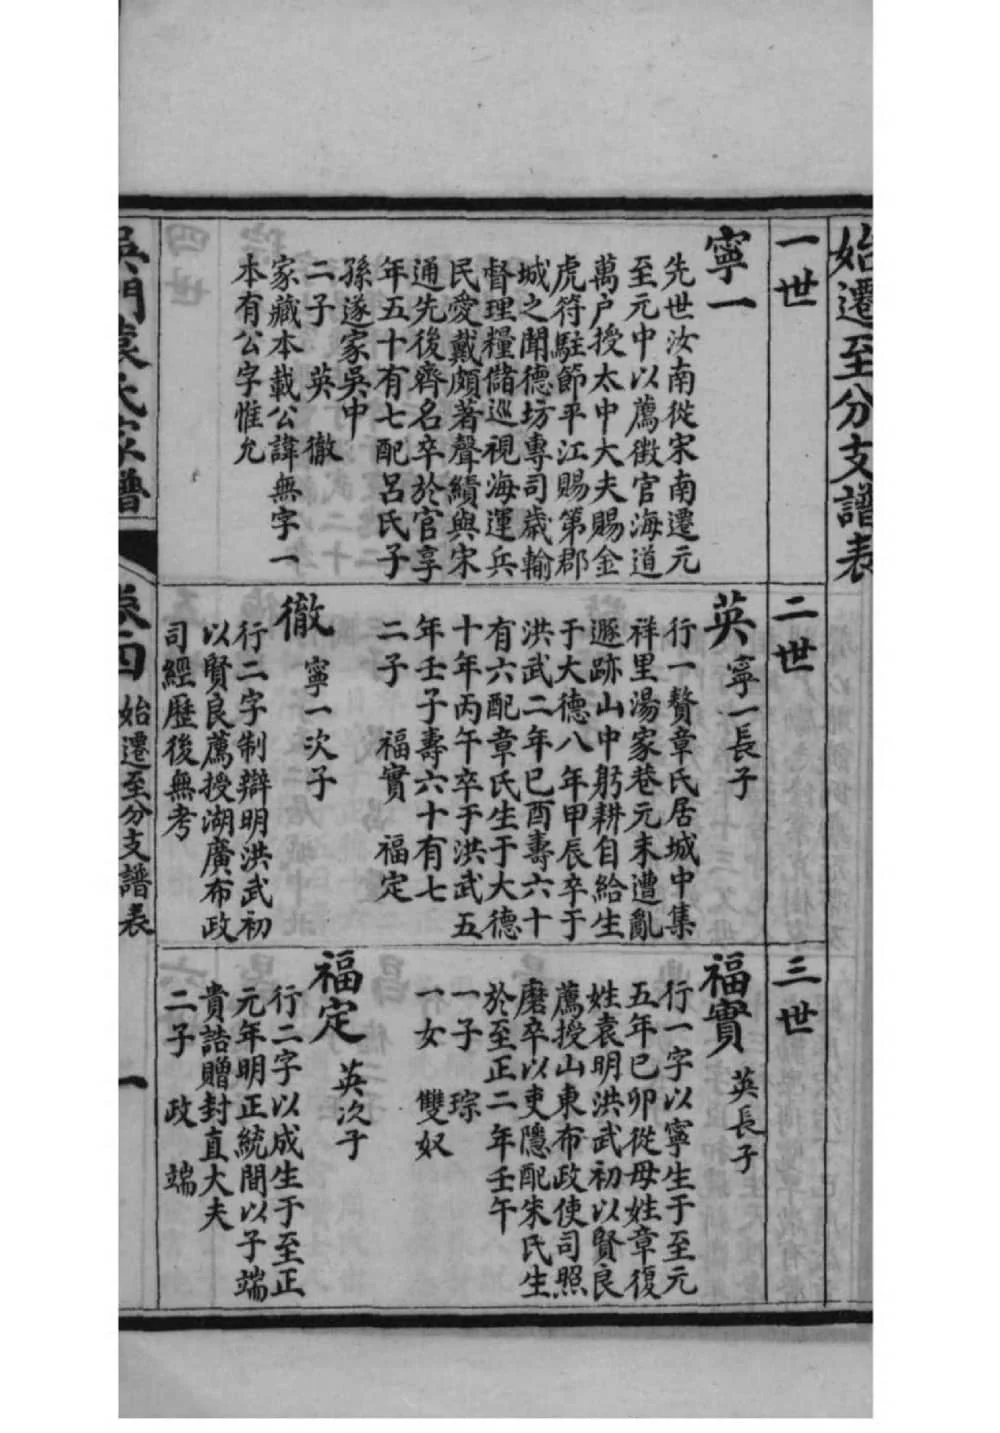 始遷至分支譜表
一世
寧一
先世汝南從宋南遷元
至元中以薦徵官海道
萬户授太中大夫賜金
虎符駐節平江賜第郡
城之聞德坊專司歲輸
督理糧儲巡視海運兵
民愛戴頗著聲績與宋
通先後齊名卒於官享
年五十有七配呂氏子
孫遂家吳中
二子 英 徹
家藏本載公諱無字一
本有公字惟允
二世
英 寧一長子
行一贅章氏居城中集
祥里湯家巷元末遭亂
遯跡山中躬耕自給生
于大德八年甲辰卒于
洪武二年巳酉壽六十
有六配章氏生于大德
十年丙午卒于洪武五
年壬子壽六十有七
二子 福實 福定
徹 寧一次子
行二字制辯明洪武初
以賢良薦授湖廣布政
司經歷後無考
三世
福實 英長子
行一字以寧生于至元
五年巳卯從母姓章復
姓袁明洪武初以賢良
薦授山東布政使司照
磨卒以吏隱配朱氏生
於至正二年壬午
一子 琮
一女 雙奴
福定 英次子
行二字以成生于至正
元年明正統間以子端
貴誥贈封直大夫
二子 政 端
吳門袁氏家譜
卷四 始遷至分支譜表
一